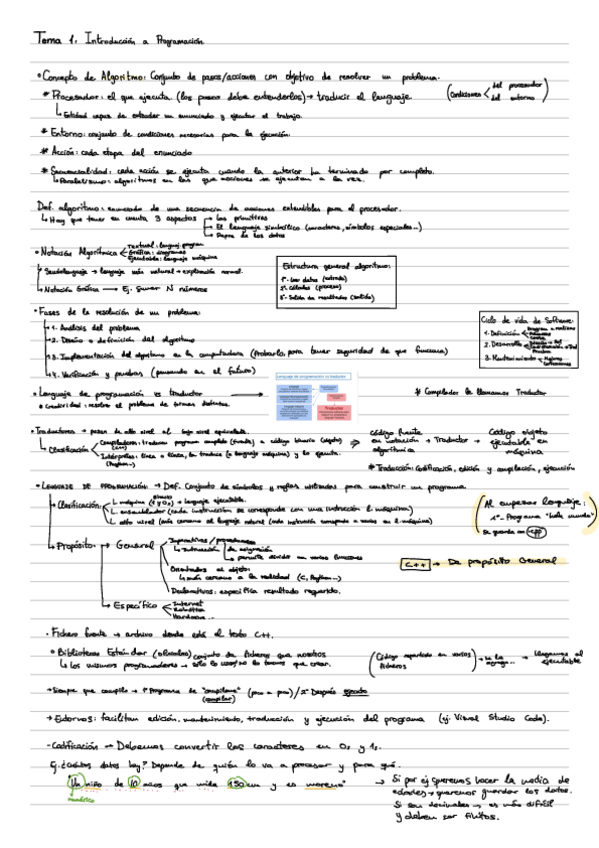 Tema 1. Introducción a Programación
• Concepto de Algoritmo: Conjunto de pasos/acciones con objetivo de resolver un problema.
* Procesador: el que ejecuta. (los pasos debe entenderlos) → traducir el lenguaje.
(Condiciones < del procesador
del entorno)
↳ Entidad capaz de entender un enunciado y ejecutar el trabajo.
* Entorno: conjunto de condiciones necesarias para la ejecución.
* Acción: cada etapa del enunciado
* Secuencialidad: cada acción se ejecuta cuando la anterior ha terminado por completo.
↳ Paralelismo: algoritmos en los que acciones se ejecutan a la vez.
Def. algoritmo: enunciado de una secuencia de acciones entendibles para el procesador.
↳ Hay que tener en cuenta 3 aspectos
→ Las primitivas
→ El lenguaje simbólico (caracteres, símbolos especiales...)
→ Repre de los datos
• Notación Algorítmica
Textual: lenguaj. program
Gráfica: diagramas
Ejecutable: lenguaje máquina
↳ Seudolenguaje → lenguaje más natural → explicación normal.
↳ Notación Gráfica → Ej. Sumar N números
Estructura general algoritmo:
1º- Leer datos (entrada)
2º- Cálculos (proceso)
3º- Salida de resultados (salida)
• Fases de la resolución de un problema:
→ 1. Análisis del problema
→ 2. Diseño o definición del algoritmo
→ 3. Implementación del algoritmo en la computadora (probarlo para tener seguridad de que funciona)
→ 4. Verificación y pruebas (pensando en el futuro)
Ciclo de vida de Software:
1. Definición
2. Desarrollo
3. Mantenimiento
• Lenguaje de programación vs traductor
Lenguaje de programación vs traductor
Traductor
* Compilador le llamamos Traductor
• Creatividad: resolver el problema de formas distintas.
• Traductores → pasan de alto nivel al bajo nivel equivalente.
↳ Clasificación
Compiladores: traducen programa completo (fuente) a código binario (objeto)
Intérpretes: línea a línea, la traduce (a lenguaje máquina) y lo ejecuta.
(Python...)
⇒ Código fuente en notación algorítmica → Traductor → Código objeto ejecutable en máquina
* Traducción: Codificación, edición y compilación, ejecución
• LENGUAJE DE PROGRAMACIÓN → Def. Conjunto de símbolos y reglas utilizadas para construir un programa
→ Clasificación:
L. máquina (1 y 0s) → lenguaje ejecutable.
L. ensamblador (cada instrucción se corresponde con una instrucción l. máquina)
L. alto nivel (más cercano al lenguaje natural (cada instrucción corresponde a varias en l. máquina)
(Al empezar lenguaje:
1º- Programa "hola mundo"
Se guarda en .cpp)
↳ Propósito:
→ General
Imperativos / procedurales
↳ Instrucción de asignación
→ permite dividir en varias funciones
Orientados al objeto:
↳ más cercano a la realidad (C, Python...)
Declarativos: especifica resultado requerido.
C++ → De propósito General
→ Específico
Internet
Robótica
Hardware...
• Fichero fuente → archivo donde está el texto C++.
• Bibliotecas Estándar (oficiales) conjunto de ficheros que nosotros
↳ los mismos programadores → sólo lo uso/no lo tenemos que crear.
(Código repartido en varios ficheros) → se le agrega... → Llegamos al ejecutable
→ Siempre que compilo → 1º Programa de "compilame" (paso a paso) / 2º Después ejecuto
(compilar)
→ Entornos: facilitan edición, mantenimiento, traducción y ejecución del programa (ej. Visual Studio Code).
- Codificación → Debemos convertir los caracteres en 0s y 1s.
Ej. ¿Cuántos datos hay? Depende de quién lo va a procesar y para qué.
"Un niño de 10 años que mide 150 cm y es moreno"
numérico
→ Si por ej queremos hacer la media de
edades → queremos guardar los datos.
Si son decimales → es más difícil
y deben ser finitos.